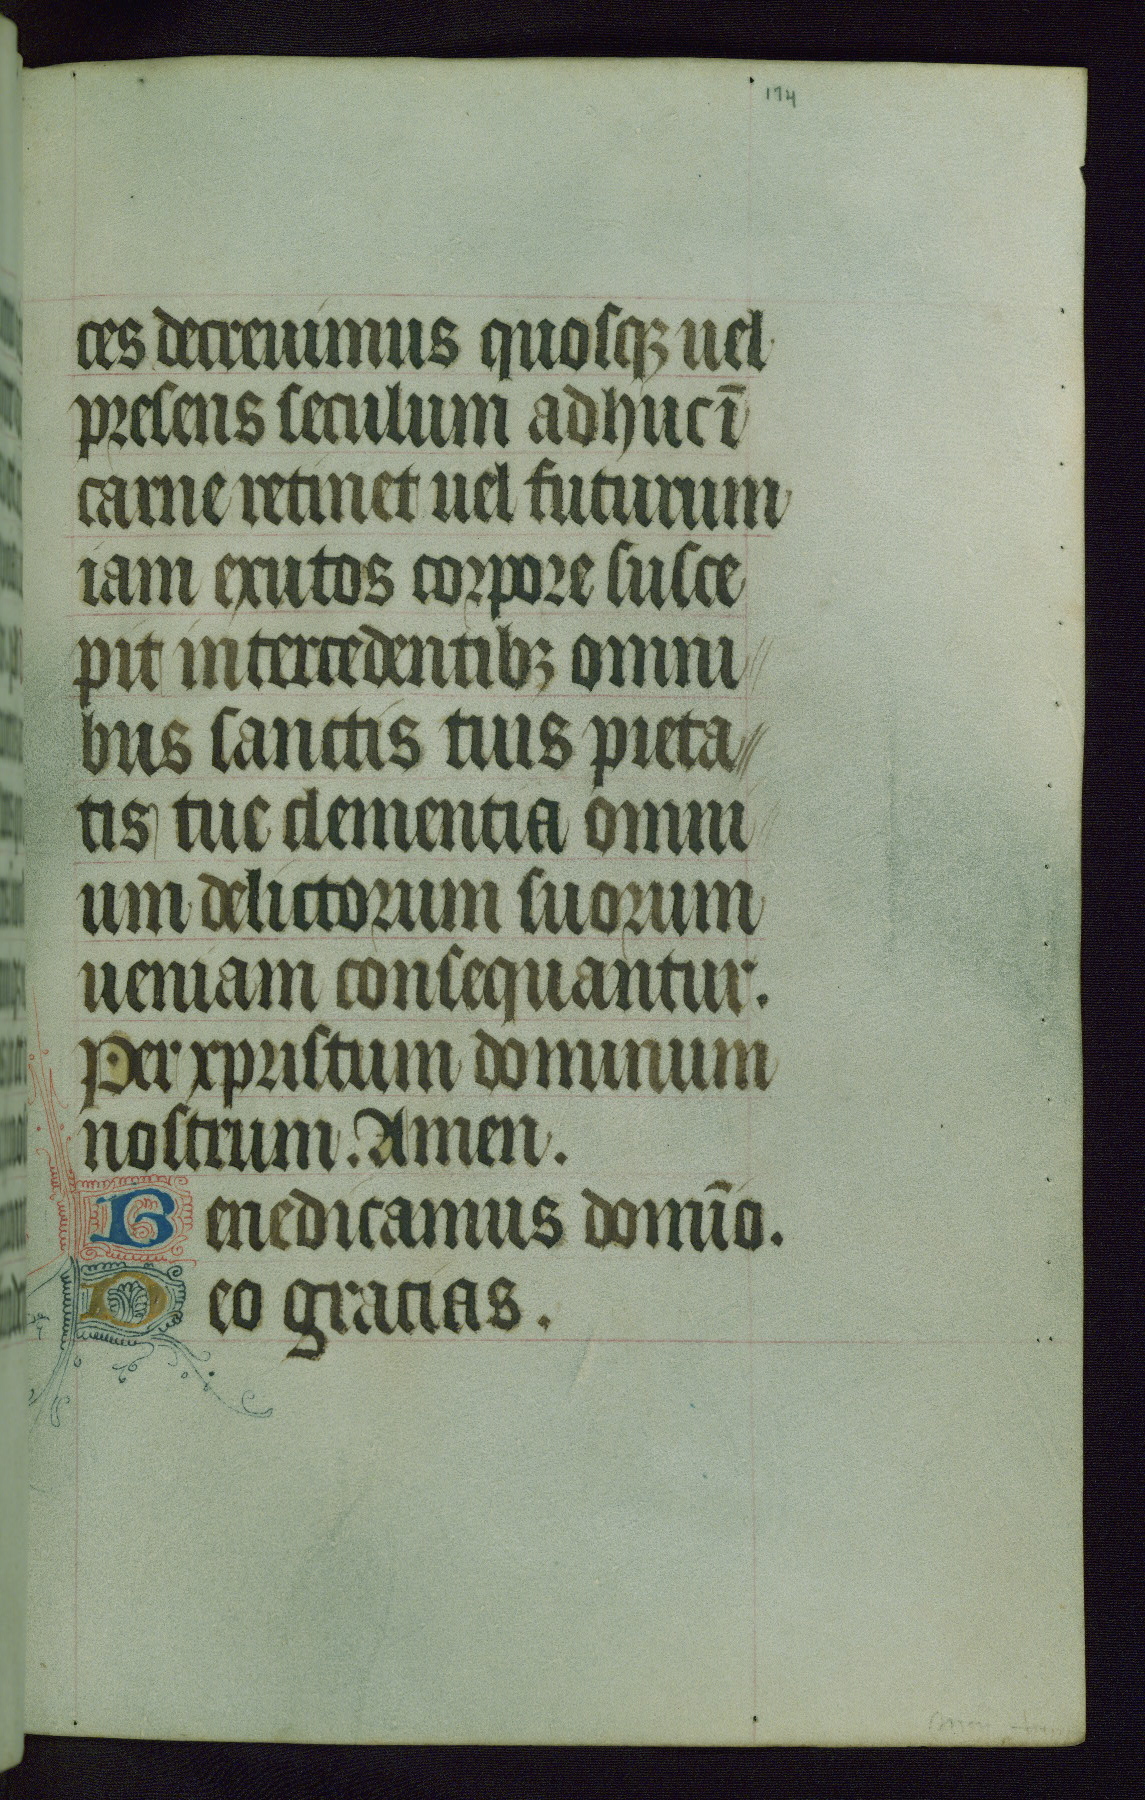 174
ces decreuimus quosqꝫ uel
presens seculum adhuc ī
carne retinet uel futurum
iam exutos corpore susce
pit intercedentibꝫ omni
bus sanctis tuis pieta
tis tue clementia omni
um delictorum suorum
ueniam consequantur.
Per xpristum dominum
nostrum. Amen.
Benedicamus domīo.
Deo gracias.